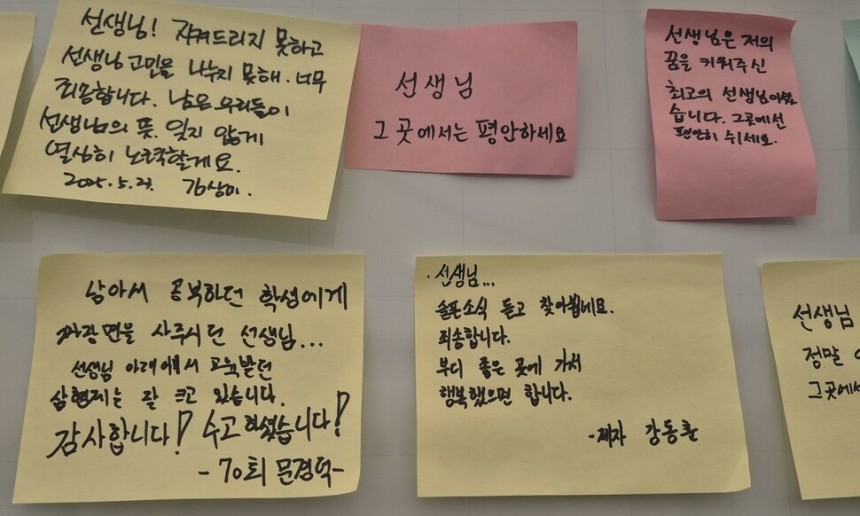 선생님! 지켜드리지 못하고
선생님 고민을 나누지 못해. 너무
죄송합니다. 남은 우리들이
선생님의 뜻. 잊지 않게
열심히 노력할게요.
2025.5.23. 김상미.
선생님
그 곳에서는 평안하세요
선생님은 저의
꿈을 키워주신
최고의 선생님이셨
습니다. 그곳에선
편안히 쉬세요.
남아서 공부하던 학생에게
짜장면을 사주시던 선생님...
선생님 아래에서 교육받던
삼형제는 잘 크고 있습니다.
감사합니다! 수고하셨습니다!
-70회 문경덕-
·선생님...
슬픈소식 듣고 찾아뵙네요.
죄송합니다.
부디 좋은 곳에 가서
행복했으면 합니다.
-제자 강동훈
선생님
정말
그곳에서